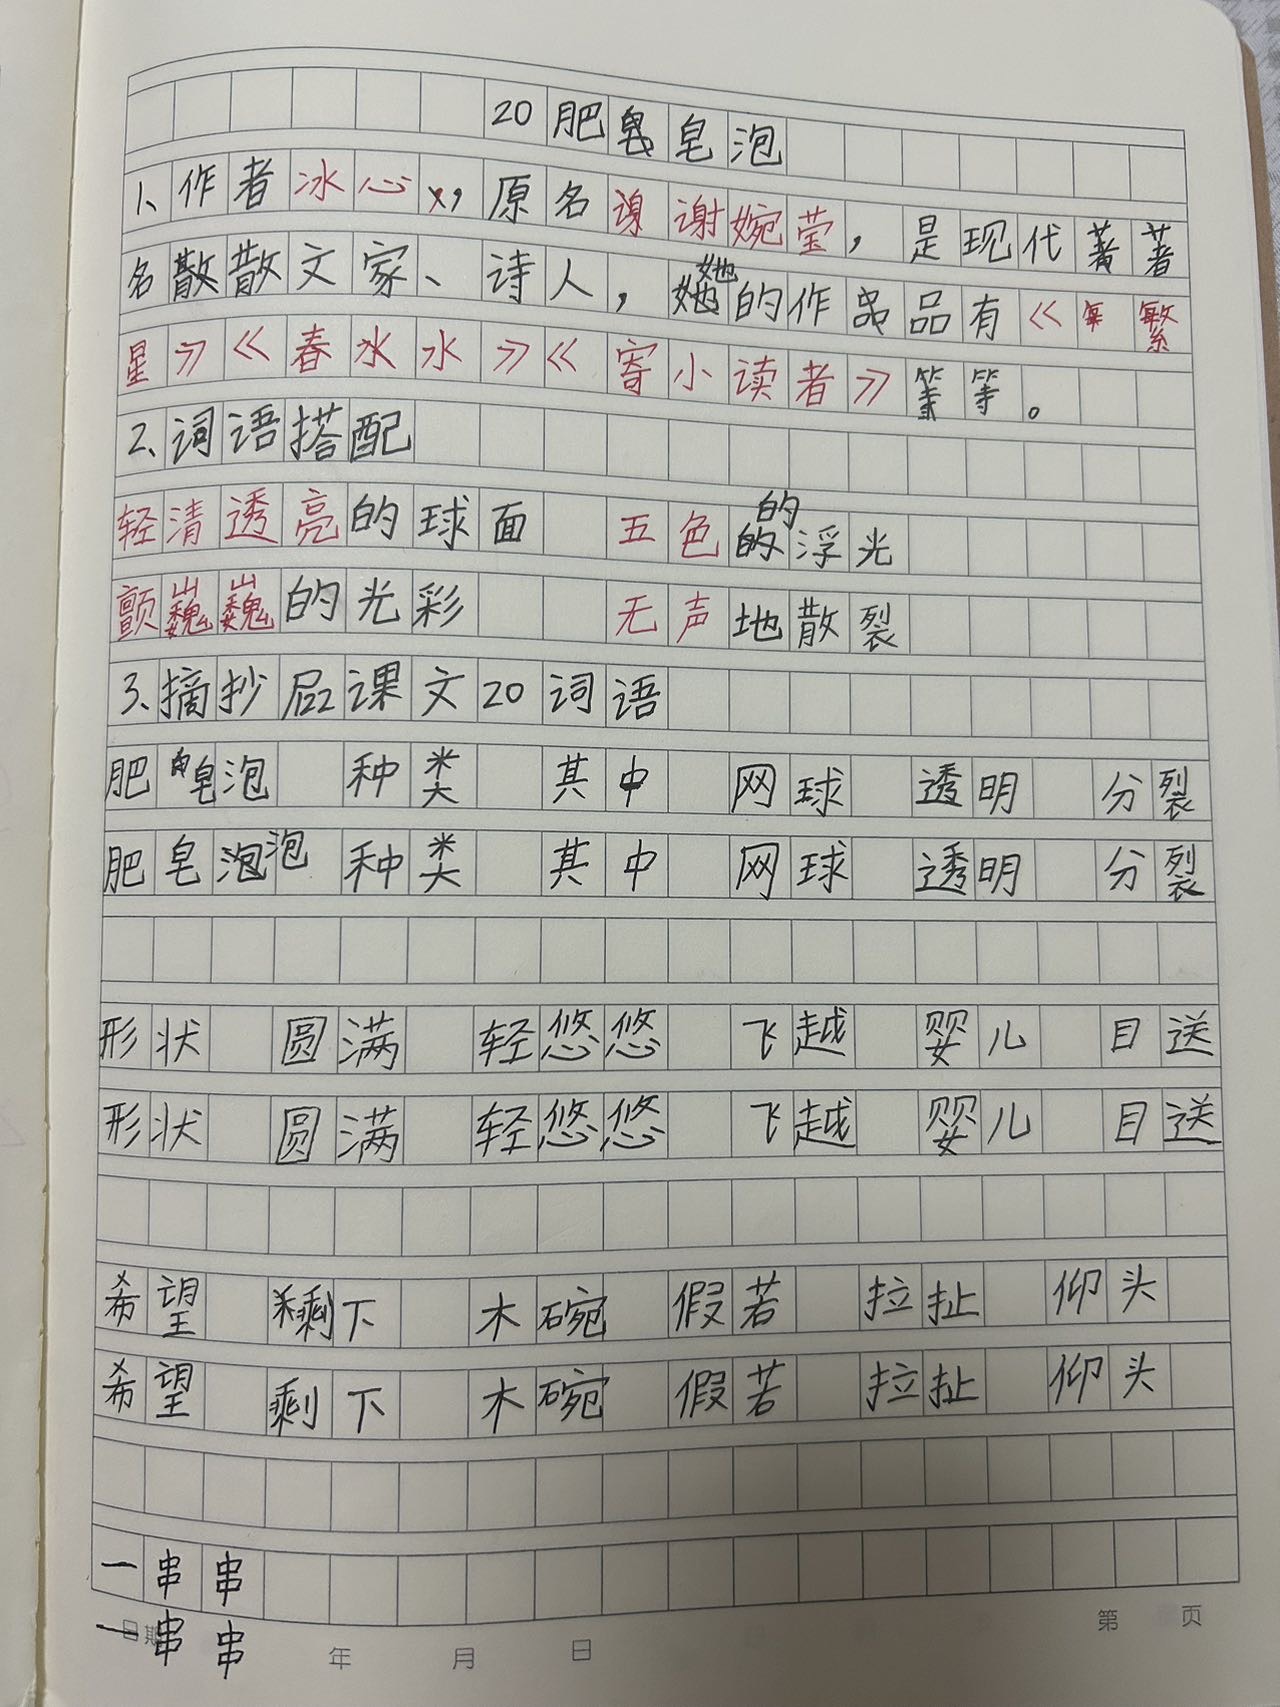 20肥皂皂泡
1、作者冰心，原名谢谢婉莹，是现代著著
名散散文家、诗人，她她的作品品有《繁
星》《春水水》《寄小读者》等等。
2、词语搭配
轻清透亮的球面 五色的的浮光
颤巍巍的光彩 无声地散裂
3、摘抄后课文20词语
肥皂泡 种类 其中 网球 透明 分裂
肥皂泡泡 种类 其中 网球 透明 分裂
形状 圆满 轻悠悠 飞越 婴儿 目送
形状 圆满 轻悠悠 飞越 婴儿 目送
希望 剩下 木碗 假若 拉扯 仰头
希望 剩下 木碗 假若 拉扯 仰头
一串串
一串串
日期 年 月 日 第 页